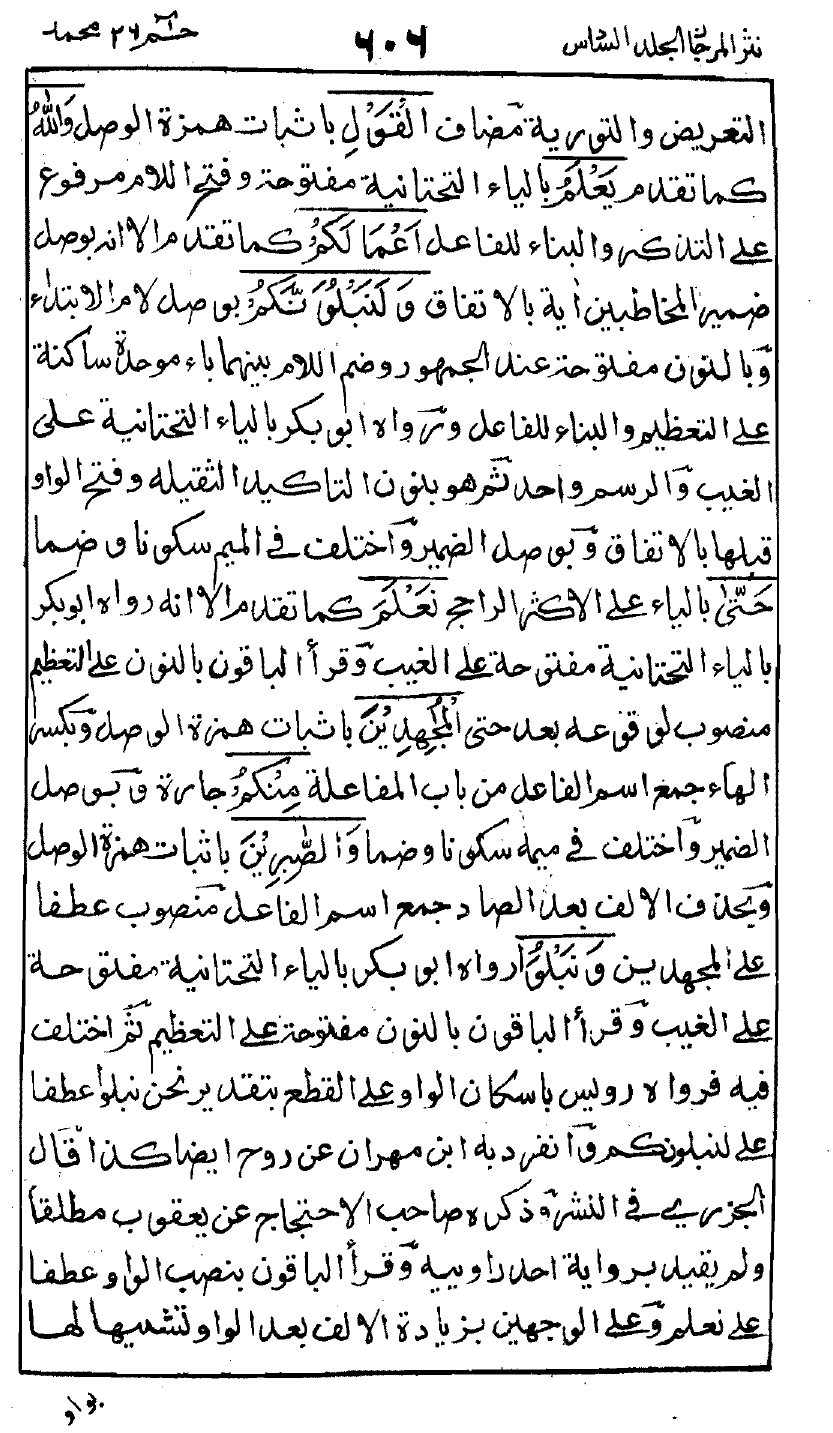 نثر المرجان الجلد السادس ٦٠٦ حٰم ٢٦ محمد
التعريض والتورية مضاف الْقَوْلِ باثبات همزة الوصل وَاللّٰهُ
كما تقدم يَعْلَمُ بالياء التحتانية مفتوحة وفتح اللام مرفوع
على التذكير والبناء للفاعل اَعْمَالَكُمْ كما تقدم الا انه بوصل
ضمير المخاطبين اٰية بالاتفاق وَلَنَبْلُوَنَّكُمْ بوصل لام الابتداء
وبالنون مفتوحة عند الجمهور وضم اللام بينهما باء موحدة ساكنة
على التعظيم والبناء للفاعل ورواه ابو بكر بالياء التحتانية على
الغيب والرسم واحد ثم هو بنون التاكيد الثقيله وفتح الواو
قبلها بالاتفاق وبوصل الضمير واختلف فى الميم سكونا وضما
حَتّٰى بالياء على الاكثر الراجح نَعْلَمَ كما تقدم الا انه رواه ابوبكر
بالياء التحتانية مفتوحة على الغيب وقرأ الباقون بالنون على التعظيم
منصوب لوقوعه بعد حتى الْمُجٰهِدِيْنَ باثبات همزة الوصل وبكسر
الهاء جمع اسم الفاعل من باب المفاعلة مِنْكُمْ جارة وبوصل
الضمير واختلف فى ميمه سكونا وضما وَالصّٰبِرِيْنَ باثبات همزة الوصل
وبحذف الالف بعد الصاد جمع اسم الفاعل منصوب عطفا
على المجهدين وَنَبْلُوَا رواه ابو بكر بالياء التحتانية مفتوحة
على الغيب وقرأ الباقون بالنون مفتوحة على التعظيم ثم اختلف
فيه فرواه رويس باسكان الواو على القطع بتقدير نحن نبلوا عطفا
على لنبلونكم وانفرد به ابن مهران عن روح ايضا كذا قال
الجزرى فى النشر وذكره صاحب الاحتجاج عن يعقوب مطلقا
ولم يقيد برواية احد راوييه وقرأ الباقون بنصب الواو عطفا
على نعلم وعلى الوجهين بزيادة الالف بعد الواو تشبيها لها
بواو